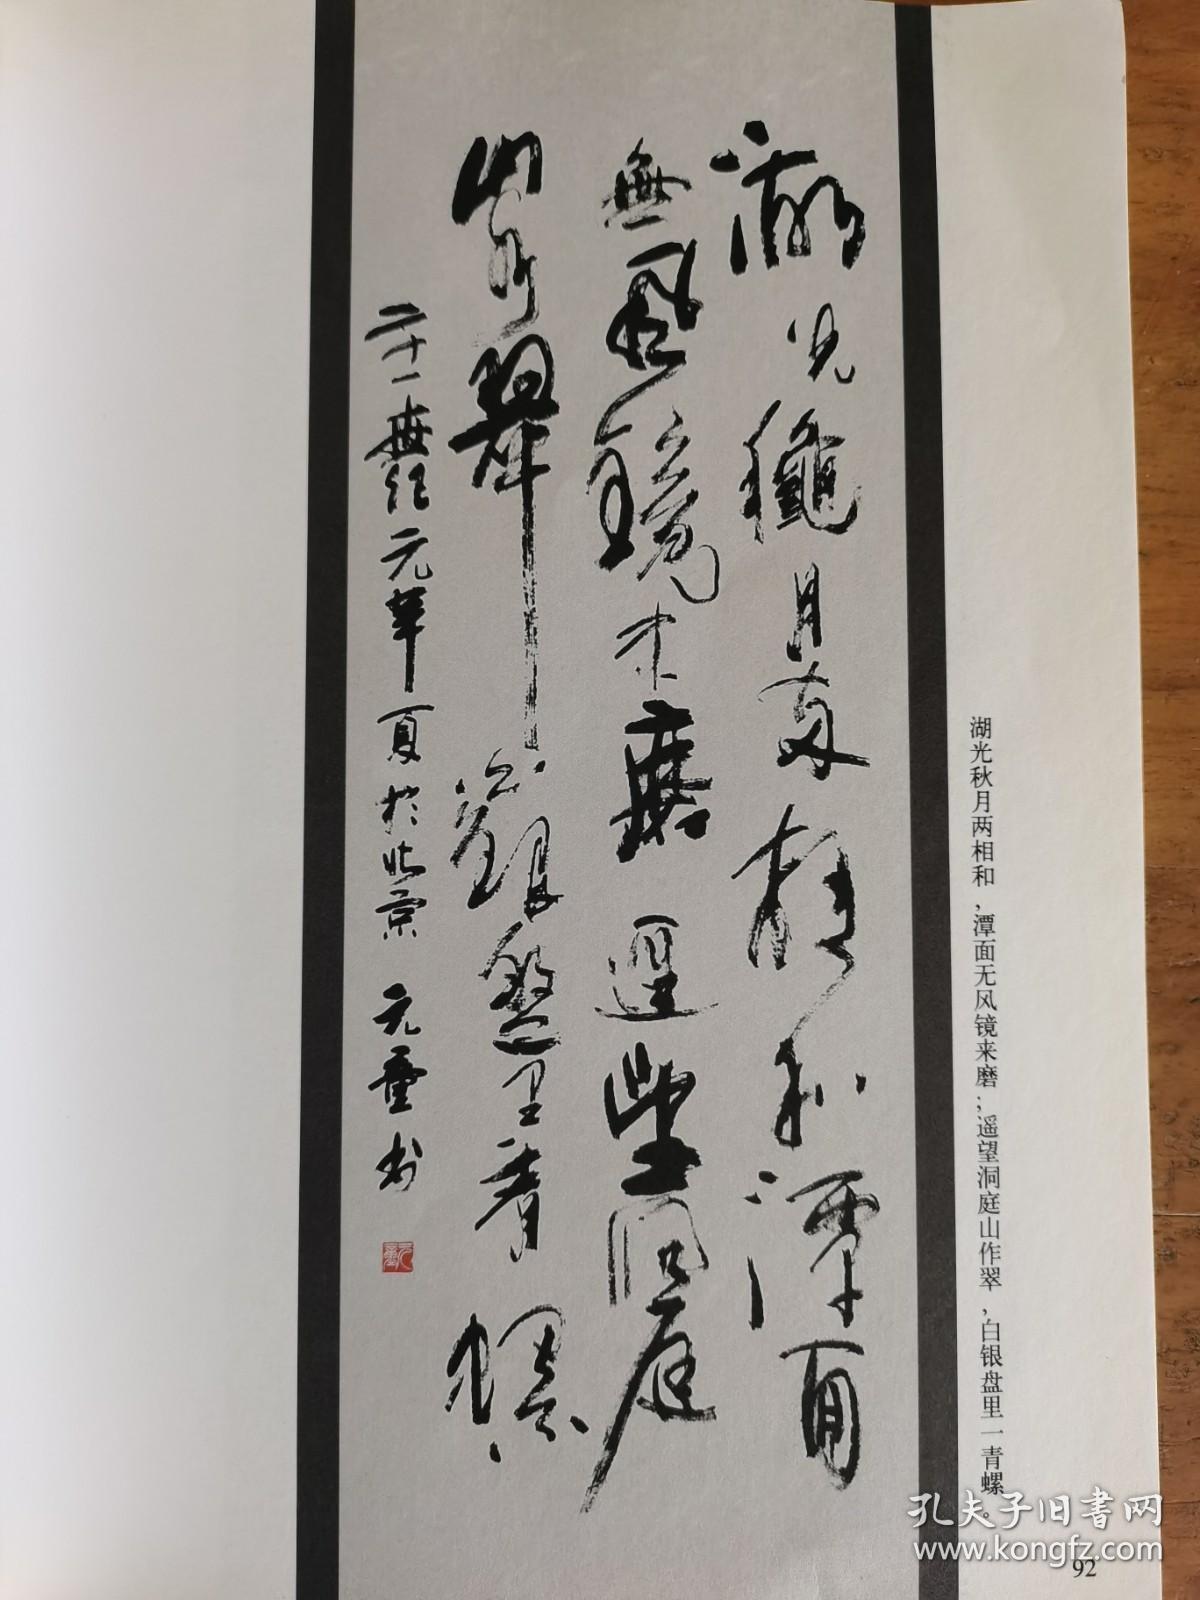 湖光龝月两相和潭面
無風鏡未磨遥望洞庭
山翠銀盤里青螺
二十一世纪元年夏於北京 元童书
湖光秋月两相和,潭面无风镜来磨;遥望洞庭山作翠,白银盘里一青螺。
孔夫子旧书网
www.kongfz.com
92